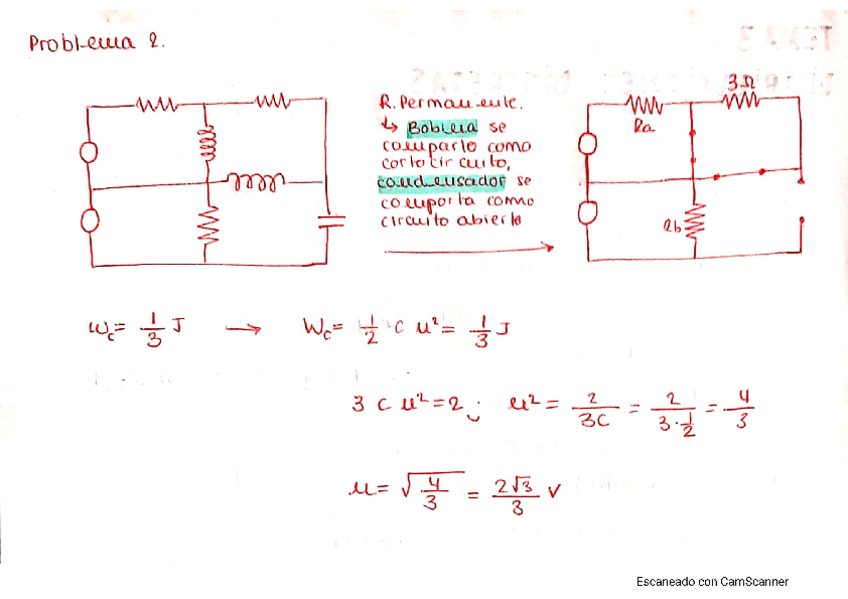 Problema 2.
R. Permanente.
↳ Bobina se
comparta como
cortocircuito,
condensador se
comporta como
circuito abierto
3Ω
Ra
Rb
Wc = 1/3 J → Wc = 1/2 · C u² = 1/3 J
3 C u² = 2 ; u² = 2/3C = 2/(3·1/2) = 4/3
u = √(4/3) = 2√3/3 V
Escaneado con CamScanner